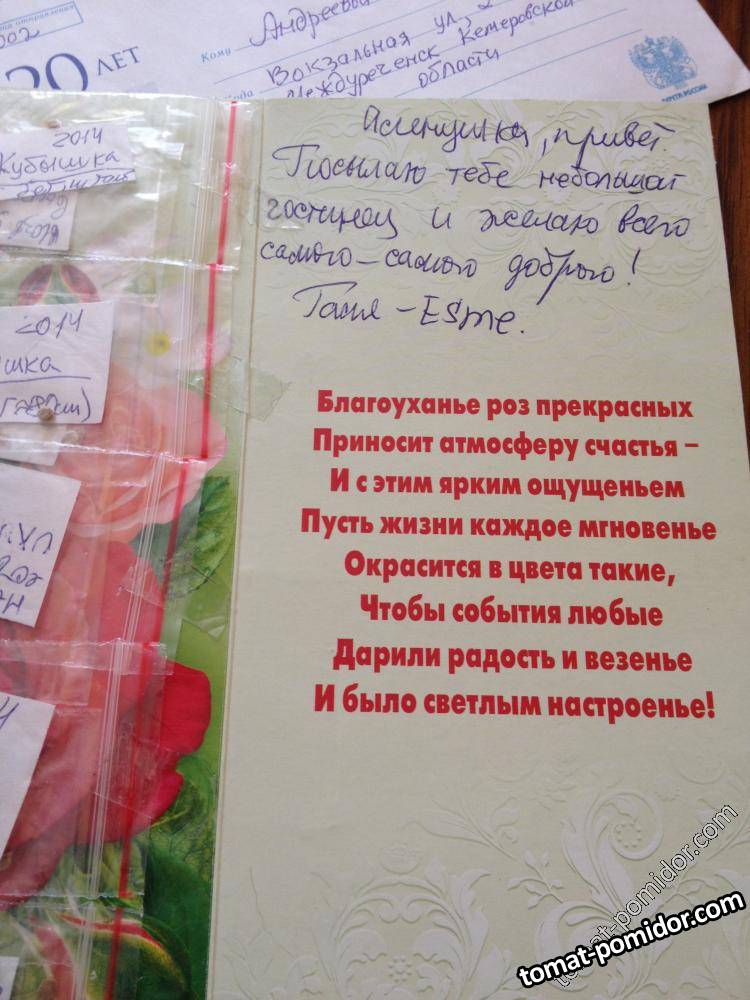 002
20 ЛЕТ
Кому Андреевой
Куда Вокзальная ул.,
Междуреченск Кемеровской
области
ПОЧТА РОССИИ
2014
Кубышка
2014
шка
Аленушка, привет.
Посылаю тебе небольшой
гостинец и желаю всего
самого-самого доброго!
Таня - Esme.
Благоуханье роз прекрасных
Приносит атмосферу счастья –
И с этим ярким ощущеньем
Пусть жизни каждое мгновенье
Окрасится в цвета такие,
Чтобы события любые
Дарили радость и везенье
И было светлым настроенье!
tomat-pomidor.com
tomat-pomidor.com